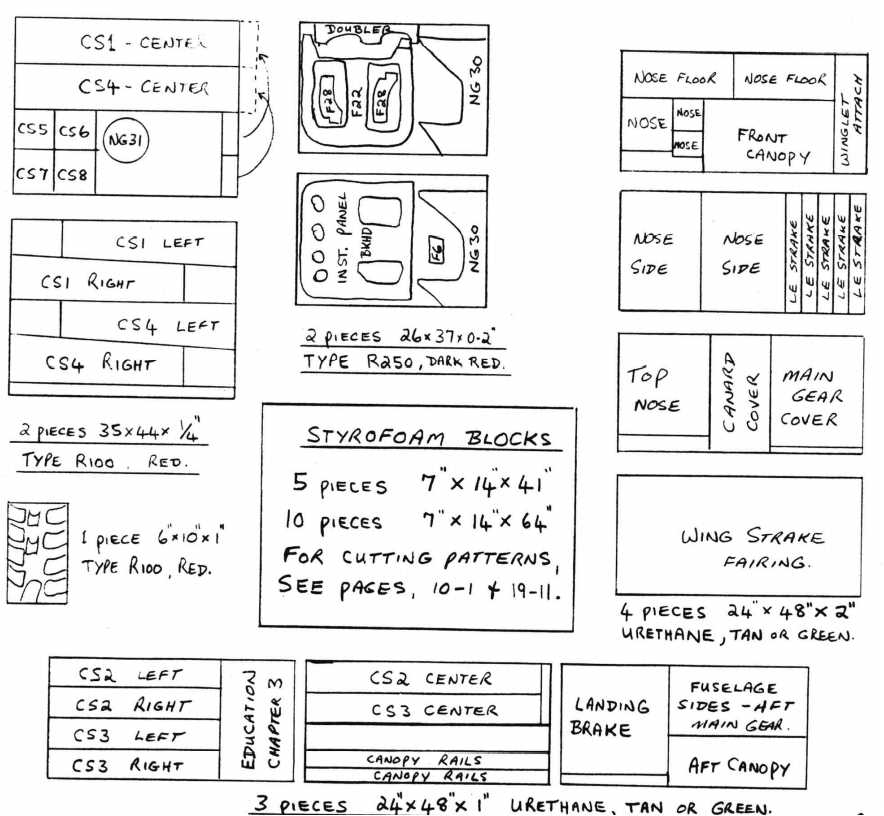 CS1 - CENTER
CS4 - CENTER
CS5 CS6
NG31
CS7 CS8
CS1 LEFT
CS1 RIGHT
CS4 LEFT
CS4 RIGHT
2 PIECES 35×44×1/4"
TYPE R100, RED.
1 PIECE 6"×10"×1"
TYPE R100, RED.
DOUBLER
F28
F22
F28
NG 30
INST. PANEL
BKHD
F6
NG 30
2 PIECES 26×37×0.2"
TYPE R250, DARK RED.
STYROFOAM BLOCKS
5 PIECES 7"×14"×41"
10 PIECES 7"×14"×64"
FOR CUTTING PATTERNS,
SEE PAGES, 10-1 & 19-11.
NOSE FLOOR
NOSE FLOOR
WINGLET
ATTACH
NOSE
NOSE
NOSE
FRONT
CANOPY
NOSE
SIDE
NOSE
SIDE
LE STRAKE
LE STRAKE
LE STRAKE
LE STRAKE
LE STRAKE
TOP
NOSE
CANARD
COVER
MAIN
GEAR
COVER
WING STRAKE
FAIRING.
4 PIECES 24"×48"×2"
URETHANE, TAN OR GREEN.
CS2 LEFT
CS2 RIGHT
CS3 LEFT
CS3 RIGHT
EDUCATION
CHAPTER 3
CS2 CENTER
CS3 CENTER
CANOPY RAILS
CANOPY RAILS
LANDING
BRAKE
FUSELAGE
SIDES - AFT
MAIN GEAR.
AFT CANOPY
3 PIECES 24"×48"×1" URETHANE, TAN OR GREEN.